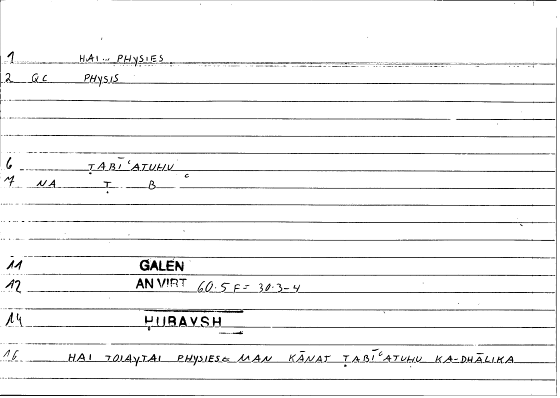 1 HAI.. PHYSIES
2 QC PHYSIS
6 ṬABĪʿATUHU
7 NA Ṭ B ʿ
11 GALEN
12 AN VIRT 60.5 F = 30.3-4
14 ḤUBAYSH
16 HAI TOIAYTAI PHYSIES = MAN KĀNAT ṬABĪʿATUHU KA-DHĀLIKA